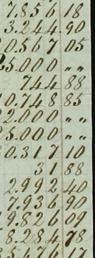 7.856 18
3.244 90
0.567 05
5.000 " "
744 88
0.748 85
2.000 " "
5.000 " "
0.317 10
31 88
2.992 40
7.936 90
9.826 09
8.284 78